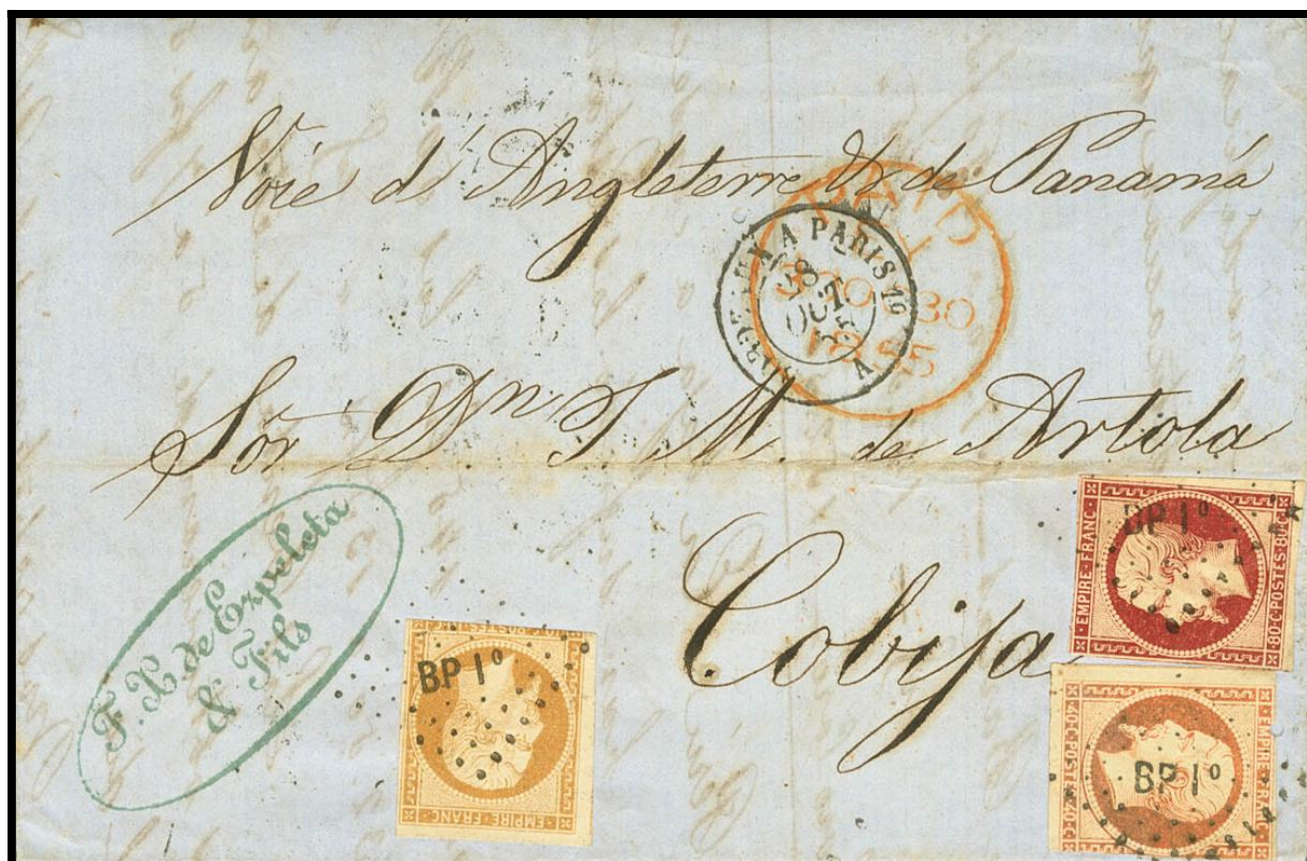 Voie d'Angleterre & de Panamá
PAID
30 OC 30
1855
BORDEAUX A PARIS 1º
28
OCT.
55
A
Sor Dn J. M. de Artola
Cobija
F. X. de Ezpeleta
& Fils
BP 1º
EMPIRE FRANC
BP 1º
EMPIRE·FRANC·
80·C·POSTES·80·C
BP 1º
EMPIRE·FRANC
40·C·POSTES·40·C